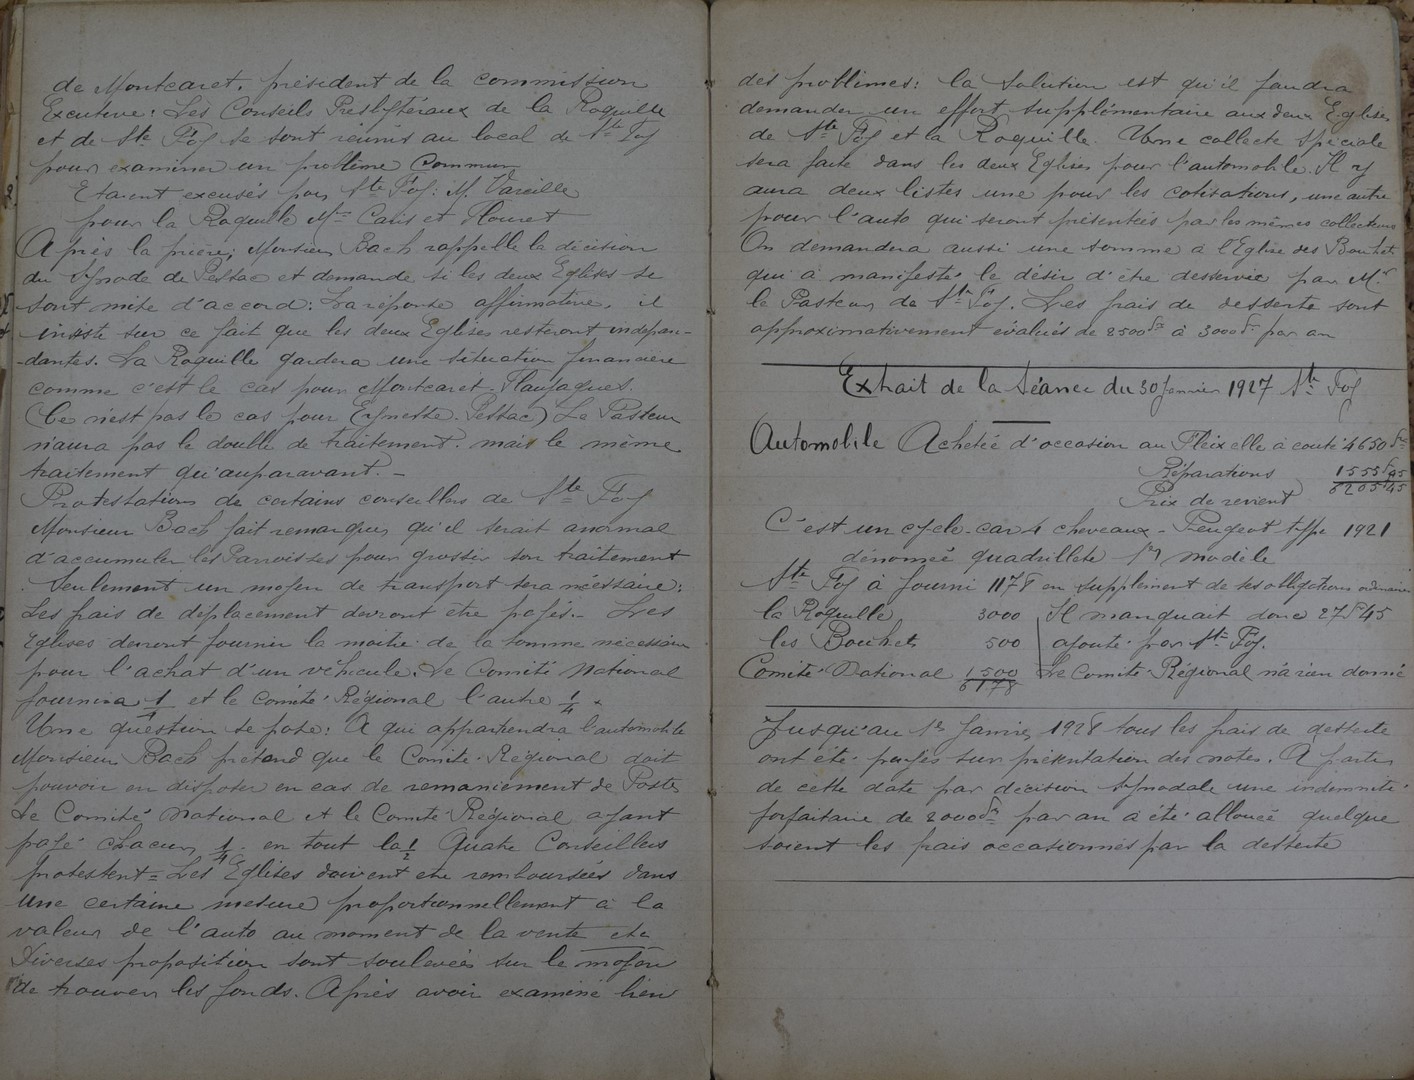 de Montcaret, président de la commission
Executive: Les Conseils Presbytéraux de la Roquille
et de Ste Foy se sont réunis au local de Ste Foy
pour examiner un problème commun
Etaient excusés pour Ste Foy: M. Vareille
pour la Roquille Mrs Calis et Flouret
Après la prière, Monsieur Bach rappelle la décision
du Synode de Pessac et demande si les deux Eglises se
sont mite d'accord: La réponse affirmative, il
insiste sur ce fait que les deux Eglises resteront indépan-
-dantes. La Roquille gardera une situation financière
comme c'est le cas pour Montcaret-Flaujagues.
(Ce n'est pas le cas pour Eynesse. Pessac) Le Pasteur
n'aura pas le double de traitement. mais le même
traitement qu'auparavant. -
Protestations de certains conseillers de Ste Foy
Monsieur Bach fait remarquer qu'il serait anormal
d'accumuler les Parroisses pour grossir son traitement
Seulement un moyen de transport sera nécessaire:
Les frais de déplacement devront être payés. - Les
Eglises devront fournir la moitié de la somme nécessaire
pour l'achat d'un véhicule. Le Comité National
fournira 1/4 et le Comité Régional l'autre 1/4.
Une question se pose: A qui appartiendra l'automobile
Monsieur Bach prétend que le Comité Régional doit
pouvoir en disposer en cas de remaniement de Postes
Le Comité National et le Comité Régional ayant
payé chacun 1/4. en tout la 1/2 Quatre Conseillers
protestent = Les Eglises doivent être remboursées dans
une certaine mesure proportionnellement à la
valeur de l'auto au moment de la vente etc
Diverses proposition sont soulevées sur le moyen
de trouver les fonds. Après avoir examiné bien
des problèmes: la solution est qu'il faudra
demander un effort supplémentaire aux deux Eglises
de Ste Foy et la Roquille. Une collecte spéciale
sera faite dans les deux Eglises pour l'automobile. Il y
aura deux listes une pour les cotisations, une autre
pour l'auto qui seront présentées par les mêmes collecteurs
On demandera aussi une somme à l'Eglise des Bouhets
qui a manifesté le désir d'être desservie par Mr
le Pasteur de Ste Foy. Les frais de desserte sont
approximativement évalués de 2500 Frs à 3000 Frs par an
Extrait de la Séance du 30 Janvier 1927 Ste Foy
Automobile Achetée d'occasion au Fleix elle à couté 4650 Frs
Réparations 1555F,45
Prix de revient 6205,45
C'est un cycle-car 4 cheveaux - Peugeot type 1921
dénomé quadrillete 1er modèle
Ste Foy à fourni 1178 en supplément de ses obligations ordinaires
la Roquille 3000 Il manquait donc 27F45
les Bouhets 500 ajouté par Ste Foy.
Comité National 1500 Le Comité Régional n'a rien donné
6178
Jusqu'au 1er Janvier 1928 tous les frais de desserte
ont été payés sur présentation des notes. A partir
de cette date par décision synodale une indemnité
forfaitaire de 2000 Frs par an a été allouée quelque
soient les frais occasionnés par la desserte